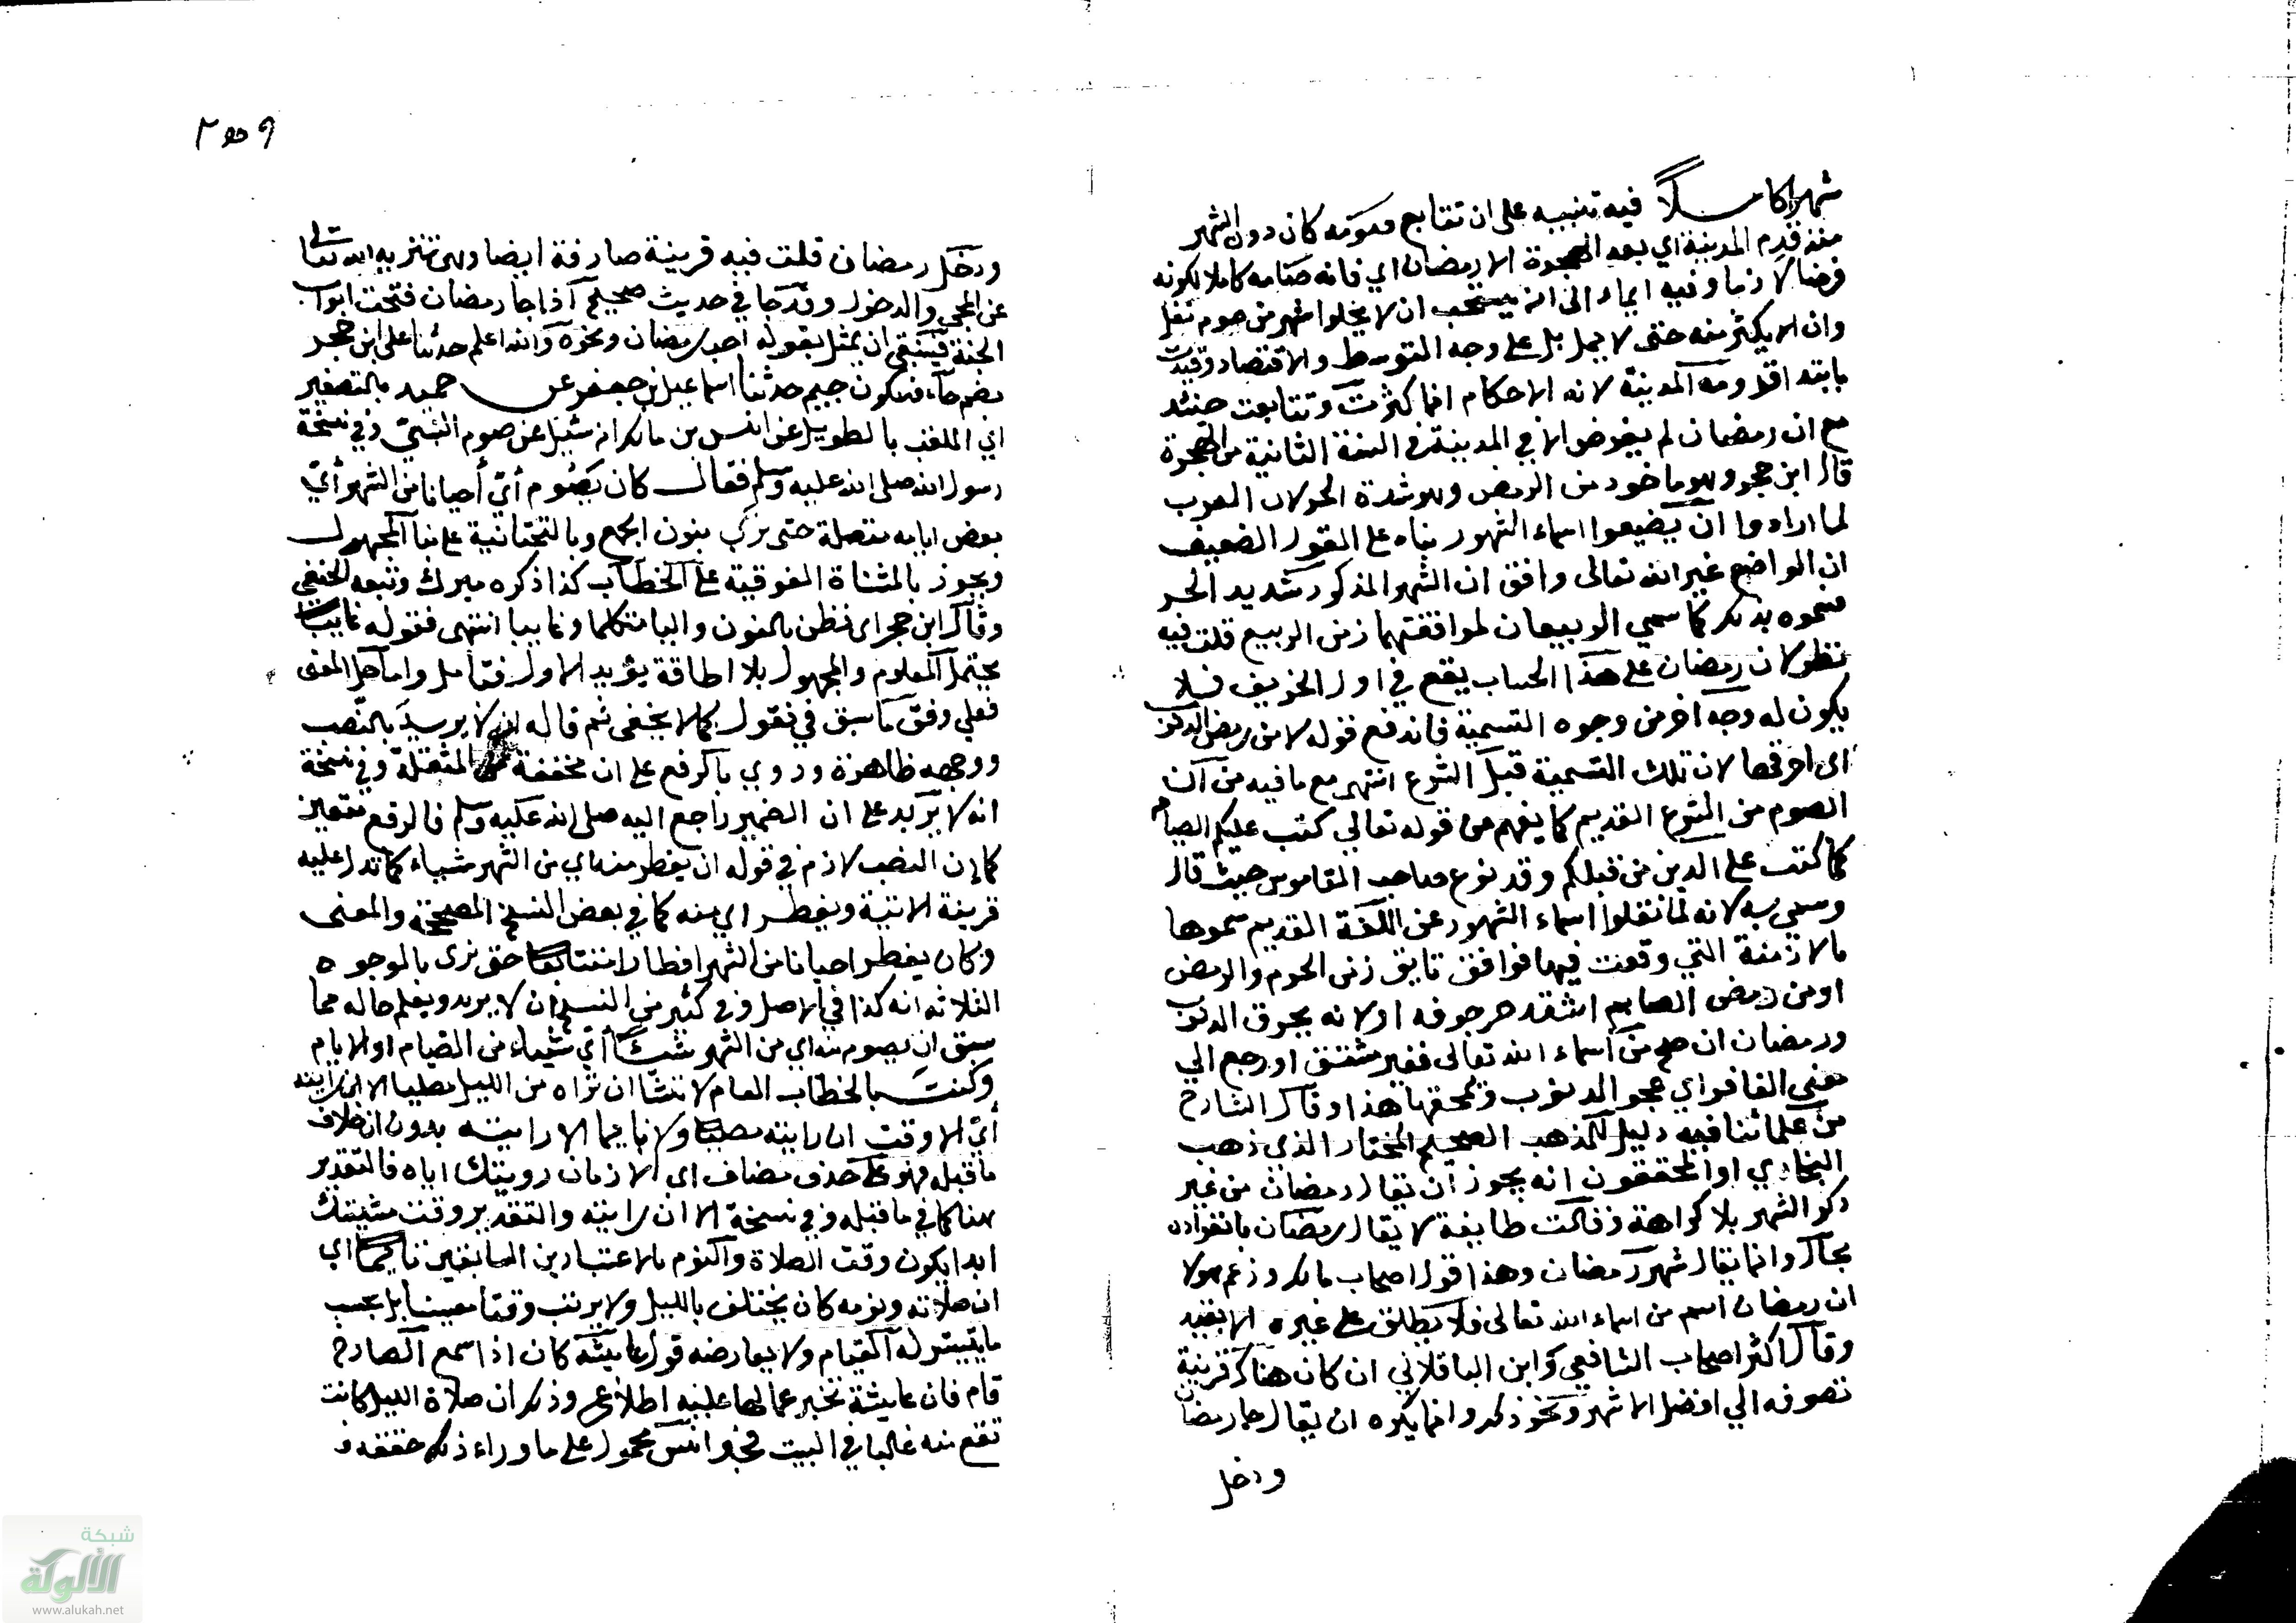 شهرا كاملا فيه تنبيه على ان تتابع صومه كان دون الشهر
منذ قدم المدينة اي بعد الهجرة الا رمضان اي فانه صامه كاملا لكونه
فرضا لازما وفيه ايماء الى انه يستحب ان لا يخلوا شهر من صوم نفل
وان لا يكثر منه حتى لا يمل بل على وجه التوسط والاقتصاد وقيدت
بابتداء قدومه المدينة لانه الاحكام انما كثرت وتتابعت حينئذ
مع ان رمضان لم يفرض الا في المدينة في السنة الثانية من الهجرة
قال ابن حجر وهو ماخوذ من الرمض وهو شدة الحر لان العرب
لما ارادوا ان يضعوا اسماء الشهور بناء على القول الضعيف
ان الواضع غير الله تعالى وافق ان الشهر المذكور شديد الحر
فسموه بذلك كما سمي الربيعان لموافقتهما زمن الربيع قلت فيه
نظر لان رمضان على هذا الحساب يقع في اول الخريف فلا
يكون له وجه اخر من وجوه التسمية فاندفع قوله لا من رمض الذنوب
اى احرقها لان تلك التسمية قبل الشرع انتهى مع ما فيه من ان
الصوم من الشرع القديم كما يفهم من قوله تعالي كتب عليكم الصيام
كما كتب على الذين من قبلكم وقد نوع صاحب القاموس حيث قال
وسمي به لانه لما نقلوا اسماء الشهور عن اللغة القديم سموها
بالازمنة التي وقعت فيها فوافق ناتق زمن الحر والرمض
او من رمض الصايم اشتد حر جوفه او لانه يحرق الذنوب
ورمضان ان صح من اسماء الله تعالى فغير مشتق او رجع الي
معنى الغافر اي يمحو الذنوب ويمحقها هذا وقال الشارح
من علمائنا فيه دليل للمذهب الصحيح المختار الذي ذهب
البخاري او المحققون انه يجوز ان يقال رمضان من غير
ذكر الشهر بلا كراهة وقالت طايفة لا يقال رمضان بانفراده
بحال وانما يقال شهر رمضان وهذا قول اصحاب مالك وزعم هولا
ان رمضان اسم من اسماء الله تعالى فلا يطلق على غيره الا بقيد
وقال اكثر اصحاب الشافعي وابن الباقلاني ان كان هناك قرينة
تصرفه الي افضل الاشهر ونحو ذلك وانما يكره ان يقال جا رمضان
ودخل
ودخل رمضان قلت فيه قرينة صارفة ايضا وهي تنزيه الله تعالى
عن المجي والدخول وقد جا في حديث صحيح اذا جا رمضان فتحت ابواب
الجنة فينبغي ان يمثل بقوله احب رمضان ونحوه والله اعلم حدثنا على ابن حجر
بضم حاء فسكون جيم حدثنا اسماعيل بن جعفر عن حميد بالتصغير
اي الملقب بالطويل عن انس بن مالك انه سئيل عن صوم النبي وفي نسخة
رسول الله صلى الله عليه وسلم فقال كان يصوم اي أحيانا من الشهر أي
بعض ايامه متصلة حتى نرى بنون الجمع وبالتحتانية على بنا المجهول
ويجوز بالمثناة الفوقية على الخطاب كذا ذكره ميرك وتبعه الحنفي
وقال ابن حجر اى نظن بالنون واليا متكلما وغايبا انتهى فقوله غايبا
يحتمل المعلوم والمجهول بلا اطاقة يؤيد الاول فتامل واما حل المعنى
فعلي وفق ما سبق في نقول كما لا يخفى ثم قاله ان لا يريد بالنصب
ووجهه ظاهرة وروي بالرفع على ان مخففة من المثقلة وفي نسخة
انه لا يريد على ان الضمير راجع اليه صلى الله عليه وسلم فالرفع متعين
كما ان النصب لازم في قوله ان يفطر منه اي من الشهر شياء كما تدل عليه
قرينة الاتية ويفطر اي منه كما في بعض النسخ المصححة والمعنى
وكان يفطر احيانا من الشهر افطارا متتابعا حتى نرى بالوجوه
الثلاثه انه كذا في الاصل وفي كثير من النسخ ان لا يريد ويعلم حاله مما
سبق ان يصوم منه اي من الشهر شيئا أي شيئا من الصيام او الايام
وكنت بالخطاب العام لا تشا ان تراه من الليل مصليا الا ان رايته
أي الا وقت ان رايته مصليا ولا نايما الا رايته بدون ان خلاف
ما قبله فهو على حذف مضاف اى الا زمان رويتك اياه فالتقدير
هنا كما في ما قبله وفي نسخة الا ان رايته والتقدير وقت مشيتك
ابدا يكون وقت الصلاة والنوم بالاعتبارين السابقين نايما اي
ان صلاته ونومه كان يختلف بالليل ولا يرتب وقتا معينا بل بحسب
ما يتيسر له القيام ولا يعارضه قول عايشه كان اذا سمع الصارخ
قام فان عايشة تخبر عما لها عليه اطلاع وذلك ان صلاة الليل كانت
تقع منه غالبا في البيت فخبر انس محمول على ما وراء ذلك حققه و
شبكة
الألوكة
www.alukah.net